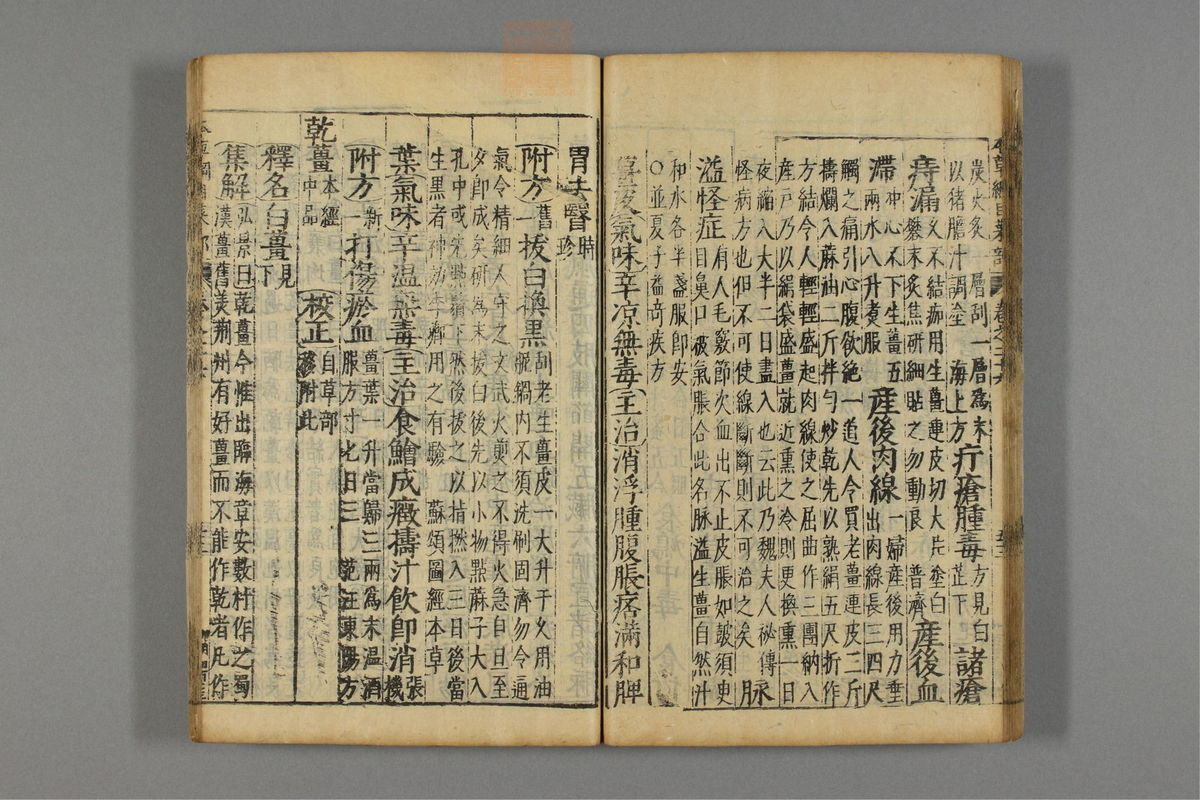 炭火炙一層刮一層爲末
以猪膽汁調塗 海上方
疔瘡腫毒
方見白
芷下
諸瘡
痔漏
久不結痂用生薑連皮切大片塗白
礬末炙焦研細貼之勿動良 普濟
產後血
滯
冲心不下生薑五
兩水八升煑服
產後肉線
一婦產後用力垂
出肉線長三四尺
觸之痛引心腹欲絶一道人令買老薑連皮二斤
擣爛入蔴油二斤拌匀炒乾先以熟絹五尺折作
方結令人輕輕盛起肉線使之屈曲作三團納入
產戸乃以絹袋盛薑就近熏之冷則更換熏一日
夜縮入大半二日盡入也云此乃魏夫人秘傳
怪病方也但不可使線斷斷則不可治之矣
脉
溢怪症
有人毛竅節次血出不止皮脹如皷須㬰
目鼻口被氣脹合此名脉溢生薑自然汁
和水各半盞服卽安
○並夏子益奇疾方
薑皮氣味辛凉無毒主治消浮腫腹脹痞滿和脾
胃去瞖
時
珍
附方
舊
一
拔白換黑
刮老生薑皮一大升于久用油
膩鍋内不須洗刷固濟勿令通
氣令精細人守之文武火煎之不得火急自旦至
夕卽成矣研爲末拔白後先以小物點蔴子大入
孔中或先點鬚下然後拔之以指撚入三日後當
生黑者神効李卿用之有驗 蘇頌圖經本草
葉氣味辛温無毒主治食鱠成癥擣汁飲卽消
張
機
附方
新
一
打傷瘀血
薑葉一升當歸三兩爲末温酒
服方寸匕日三 范汪東陽方
乾薑
本經
中品
校正
自草部
移附此
釋名白薑
見
下
集解
弘景曰乾薑今惟出臨海章安數村作之蜀
漢薑舊美荆州有好薑而不能作乾者凡作